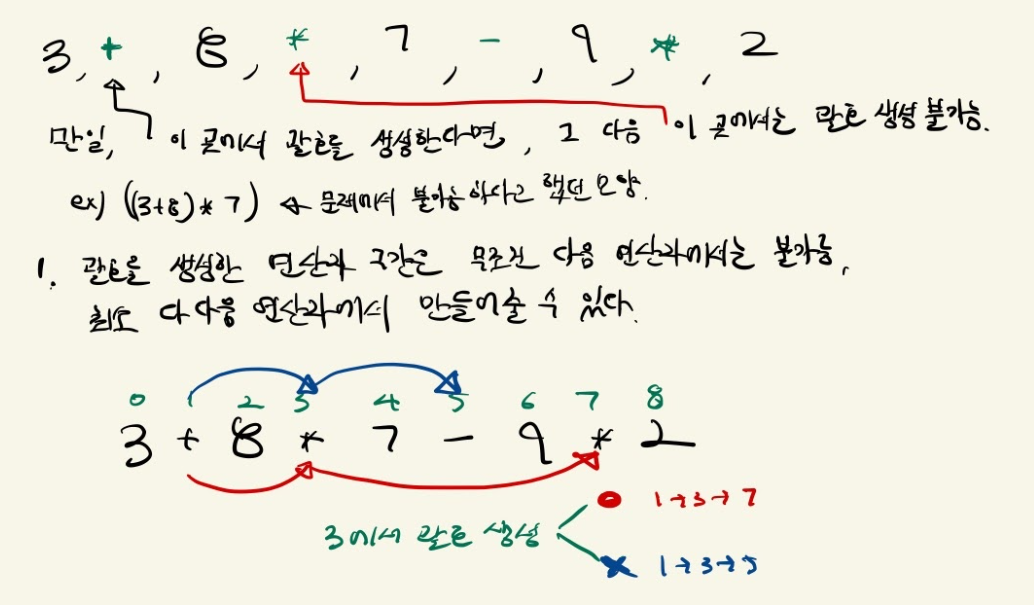 3, +, 8, *, 7, -, 9, *, 2
만일, 이 곳에서 괄호를 생성한다면, 그 다음 이 곳에서는 괄호 생성 불가능.
ex) ((3+8)*7) ← 문제에서 불가능하다고 했던 모양.
1. 괄호를 생성한 연산자 구간은 무조건 다음 연산자에서는 불가능,
최소 다다음 연산자에서 만들어줄 수 있다.
0 1 2 3 4 5 6 7 8
3 + 8 * 7 - 9 * 2
3에서 괄호 생성
O 1→3→7
X 1→3→5